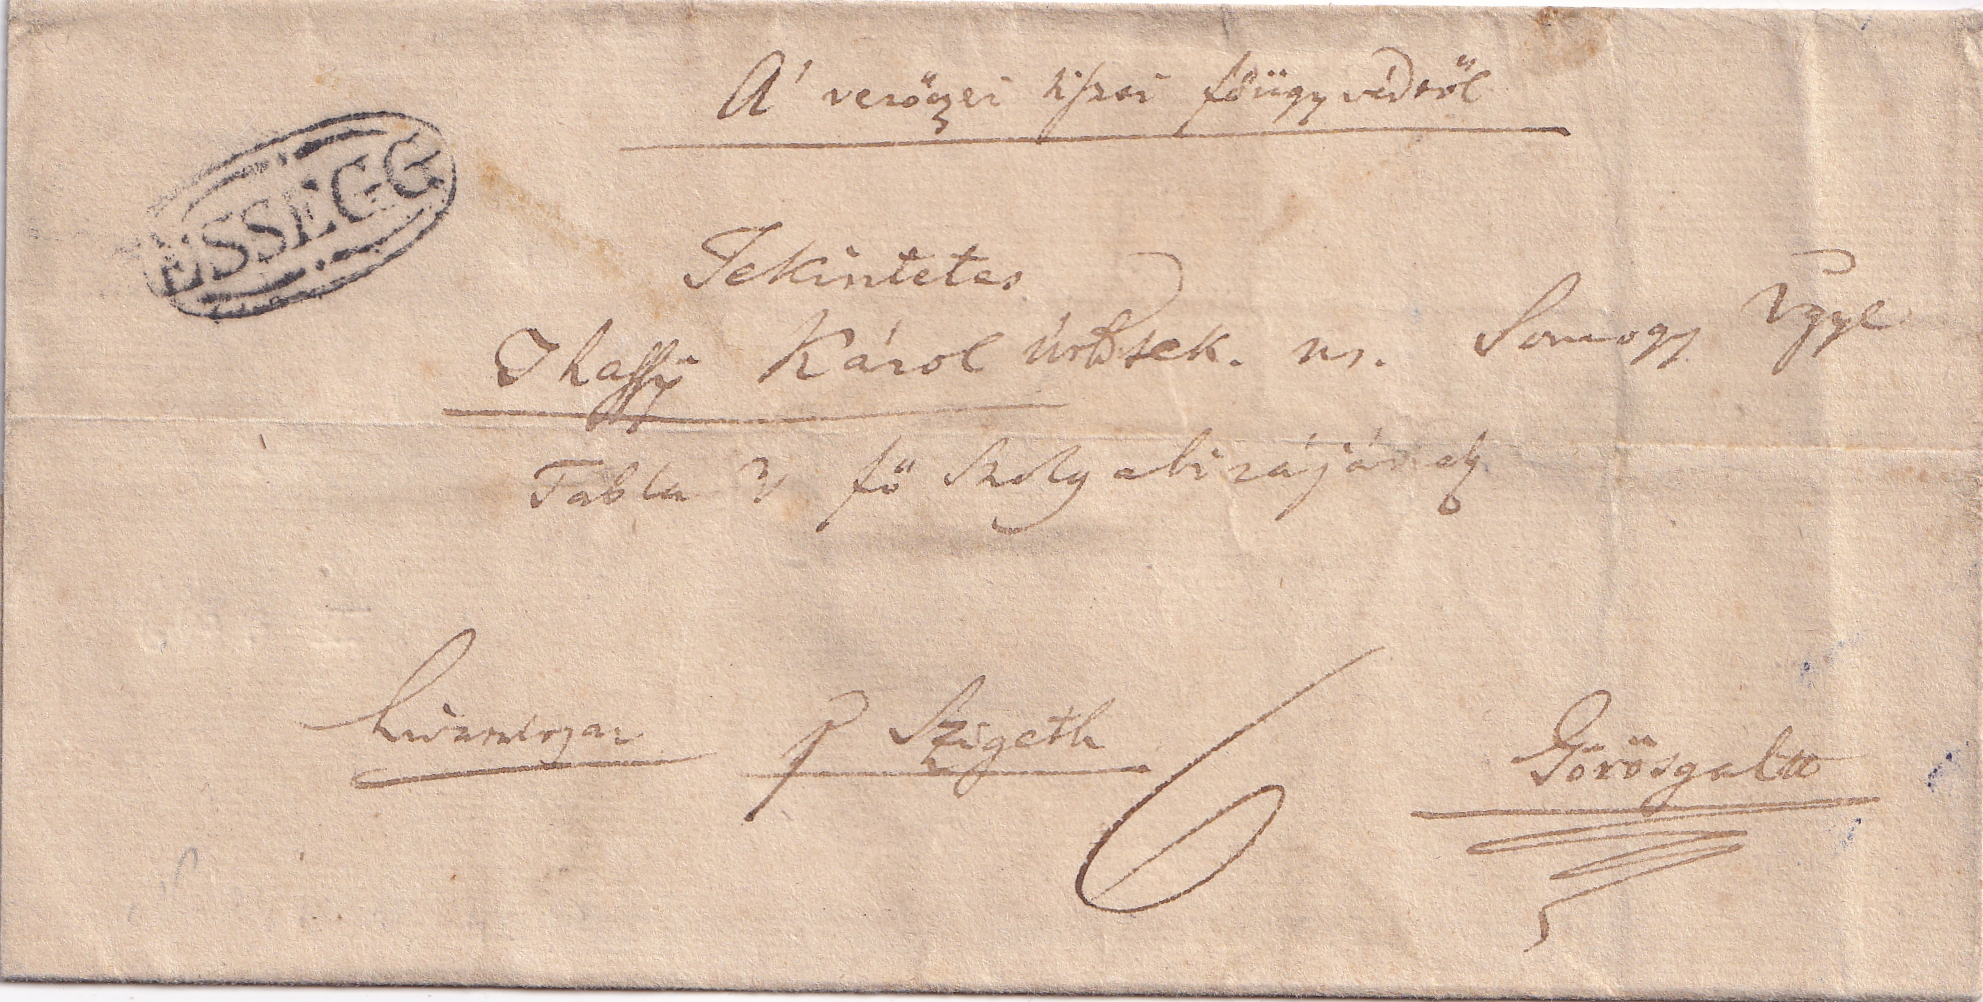 A' verőczei tiszti főügyvédtől
ESSEGG
Tekintetes
Thassy Károl úr Tsek. ns. Somogy Vgye
Tabla 's fő Szolgabirájának
p Szigeth
6
Görösgall